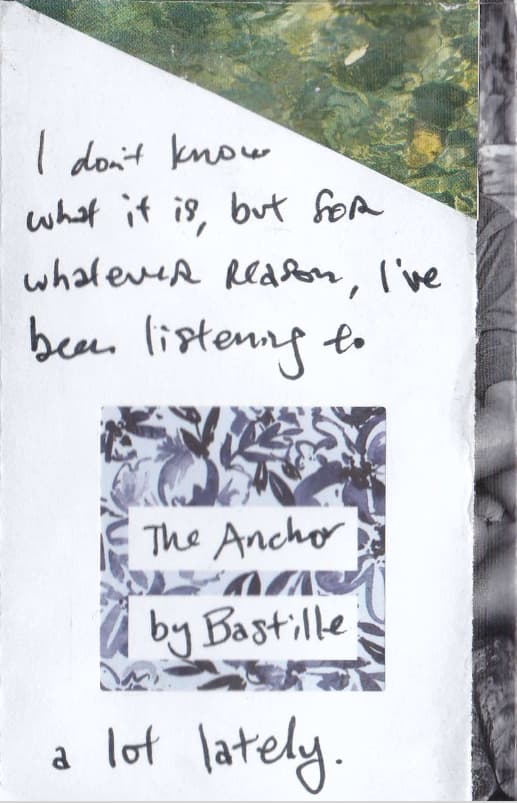 I don't know
what it is, but for
whatever reason, I've
been listening to
The Anchor
by Bastille
a lot lately.